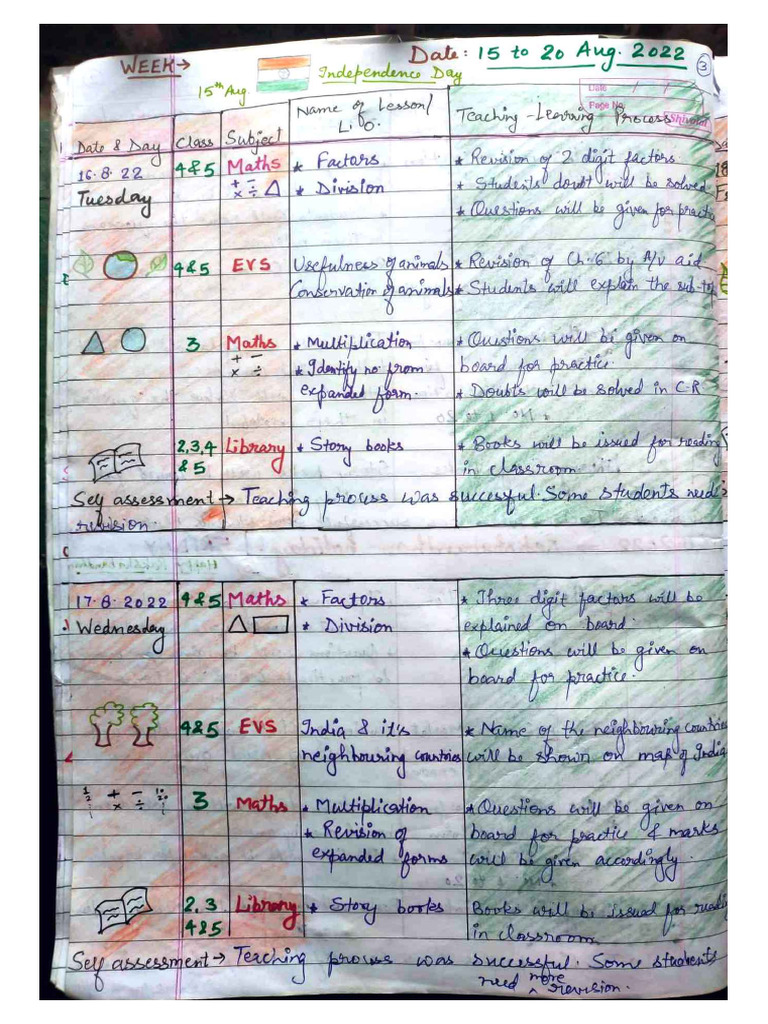 WEEK→ Date: 15 to 20 Aug. 2022
3
15th Aug. Independence Day
Date / /
Page No.
Shivalal
Date & Day Class Subject Name of Lesson/ L.O. Teaching-Learning Process
16.8.22 4&5 Maths * Factors * Revision of 2 digit factors
Tuesday + - × ÷ * Division * Students doubt will be solved
* Questions will be given for practice
4&5 EVS Usefulness of animals * Revision of Ch-6 by A/v aid
Conservation of animals * Students will explain the sub-to
3 Maths * Multiplication * Questions will be given on
+ - × ÷ * Identify no from board for practice.
expanded form. * Doubts will be solved in C.R
2,3,4 Library * Story books * Books will be issued for reading
& 5 in classroom.
Self assessment → Teaching process was successful. Some students need
revision.
17.8.2022 4&5 Maths * Factors * Three digit factors will be
Wednesday * Division explained on board.
* Questions will be given on
board for practice.
4&5 EVS India & it's * Name of the neighbouring countries
neighbouring countries will be shown on map of India
+ - × ÷ 3 Maths * Multiplication * Questions will be given on
* Revision of board for practice & marks
expanded forms will be given accordingly.
2,3 Library * Story books Books will be issued for readi
4&5 in classroom
Self assessment → Teaching process was successful. Some students
need more revision.